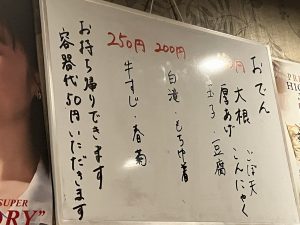 おでん
大根 ごぼ天
厚あげ こんにゃく
玉子・豆腐
200円
白滝・もち巾着
250円
牛すじ・春菊
お持ち帰りできます
容器代50円いただきます
SUPER